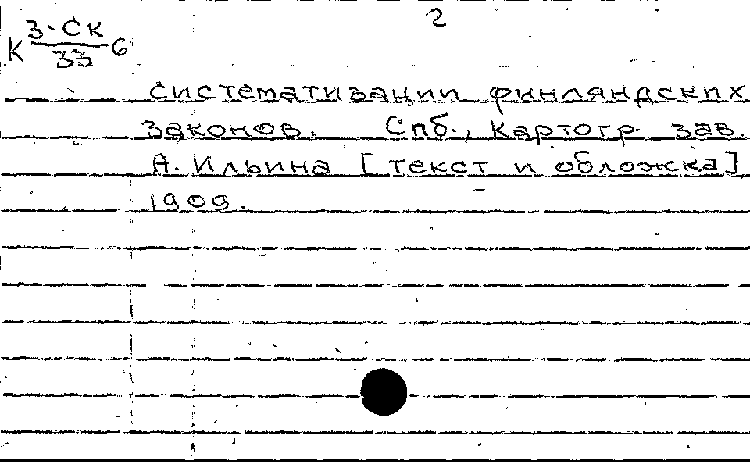 2
К 3-Ск/33 6
систематизации финляндских
законов. Спб., Картогр. зав.
А. Ильина [текст и обложка]
1909.